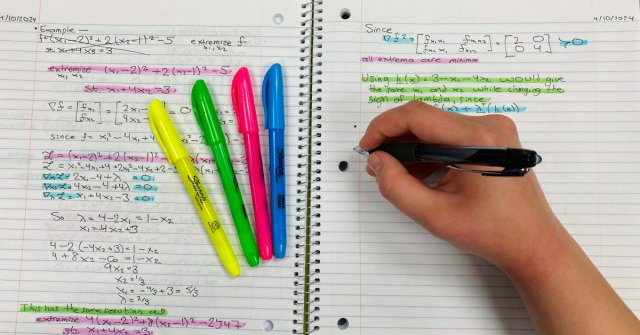 4/10/2024
Example —
f=(x₁-2)²+2(x₂-1)²-5 extremize f
x₁,x₂
x₁+4x₂=3
extremize (x₁-2)²+2(x₂-1)²-5
x₁ x₂
st. x₁+4x₂=3
∇f = [fx₁] = [2x₁ = 0
fx₂ 4x₂
since f= x₁²-4x₁+4
ℒ = (x₁-2)²+2(x₂-1)²
ℒ = x₁²-4x₁+4+2x₂²-4x₂+2
2x₁-4+λ =0
4x₂-4+4λ =0
x₁+4x₂-3 =0
So λ=4-2x₁=1-x₂
x₁=-4x₂+3
4-2(-4x₂+3)=1-x₂
4+8x₂-6=1-x₂
9x₂=3
x₂=1/3
x₁=-4/3+3=5/3
λ=2/3
This has the same solution as
extremize 4(x₁-2)²+8(x₂-1)²-2947
st. x₁+4x₂=3
Sharpie
4/10/2024
Since
∇²f = [fx₁x₁ fx₁x₂] = [2 0] >0
fx₂x₁ fx₂x₂ 0 4
all extrema are minima
Using h(x)=3-x₁-4x₂ would give
the same x₁ and x₂ while changing the
sign of lambda, since